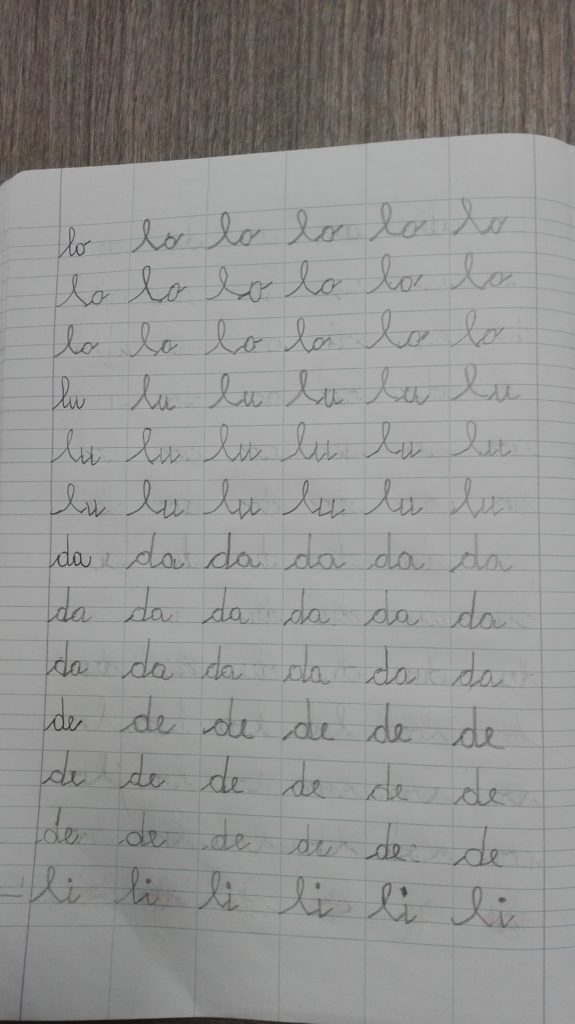 lo lo lo lo lo lo
lo lo lo lo lo lo
lo lo lo lo lo lo
lu lu lu lu lu lu
lu lu lu lu lu lu
lu lu lu lu lu lu
da da da da da da
da da da da da da
da da da da da da
de de de de de de
de de de de de de
de de de de de de
li li li li li li